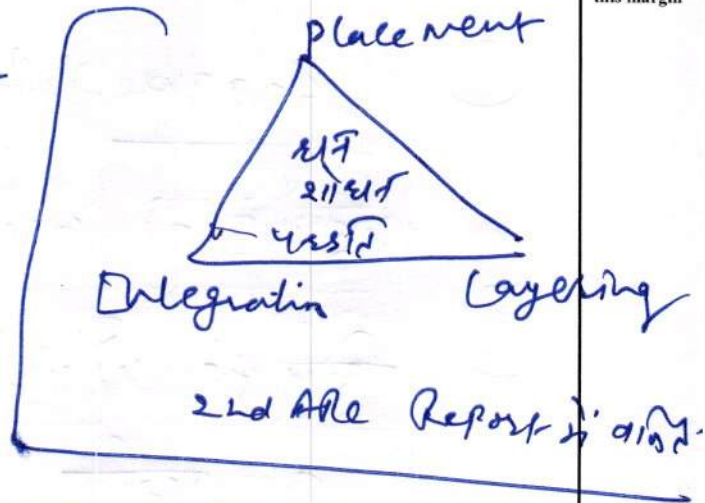 this margin
Placement
धन
शोधन
पद्धति
Integratin
Layering
2nd ARC Report में वर्णित.